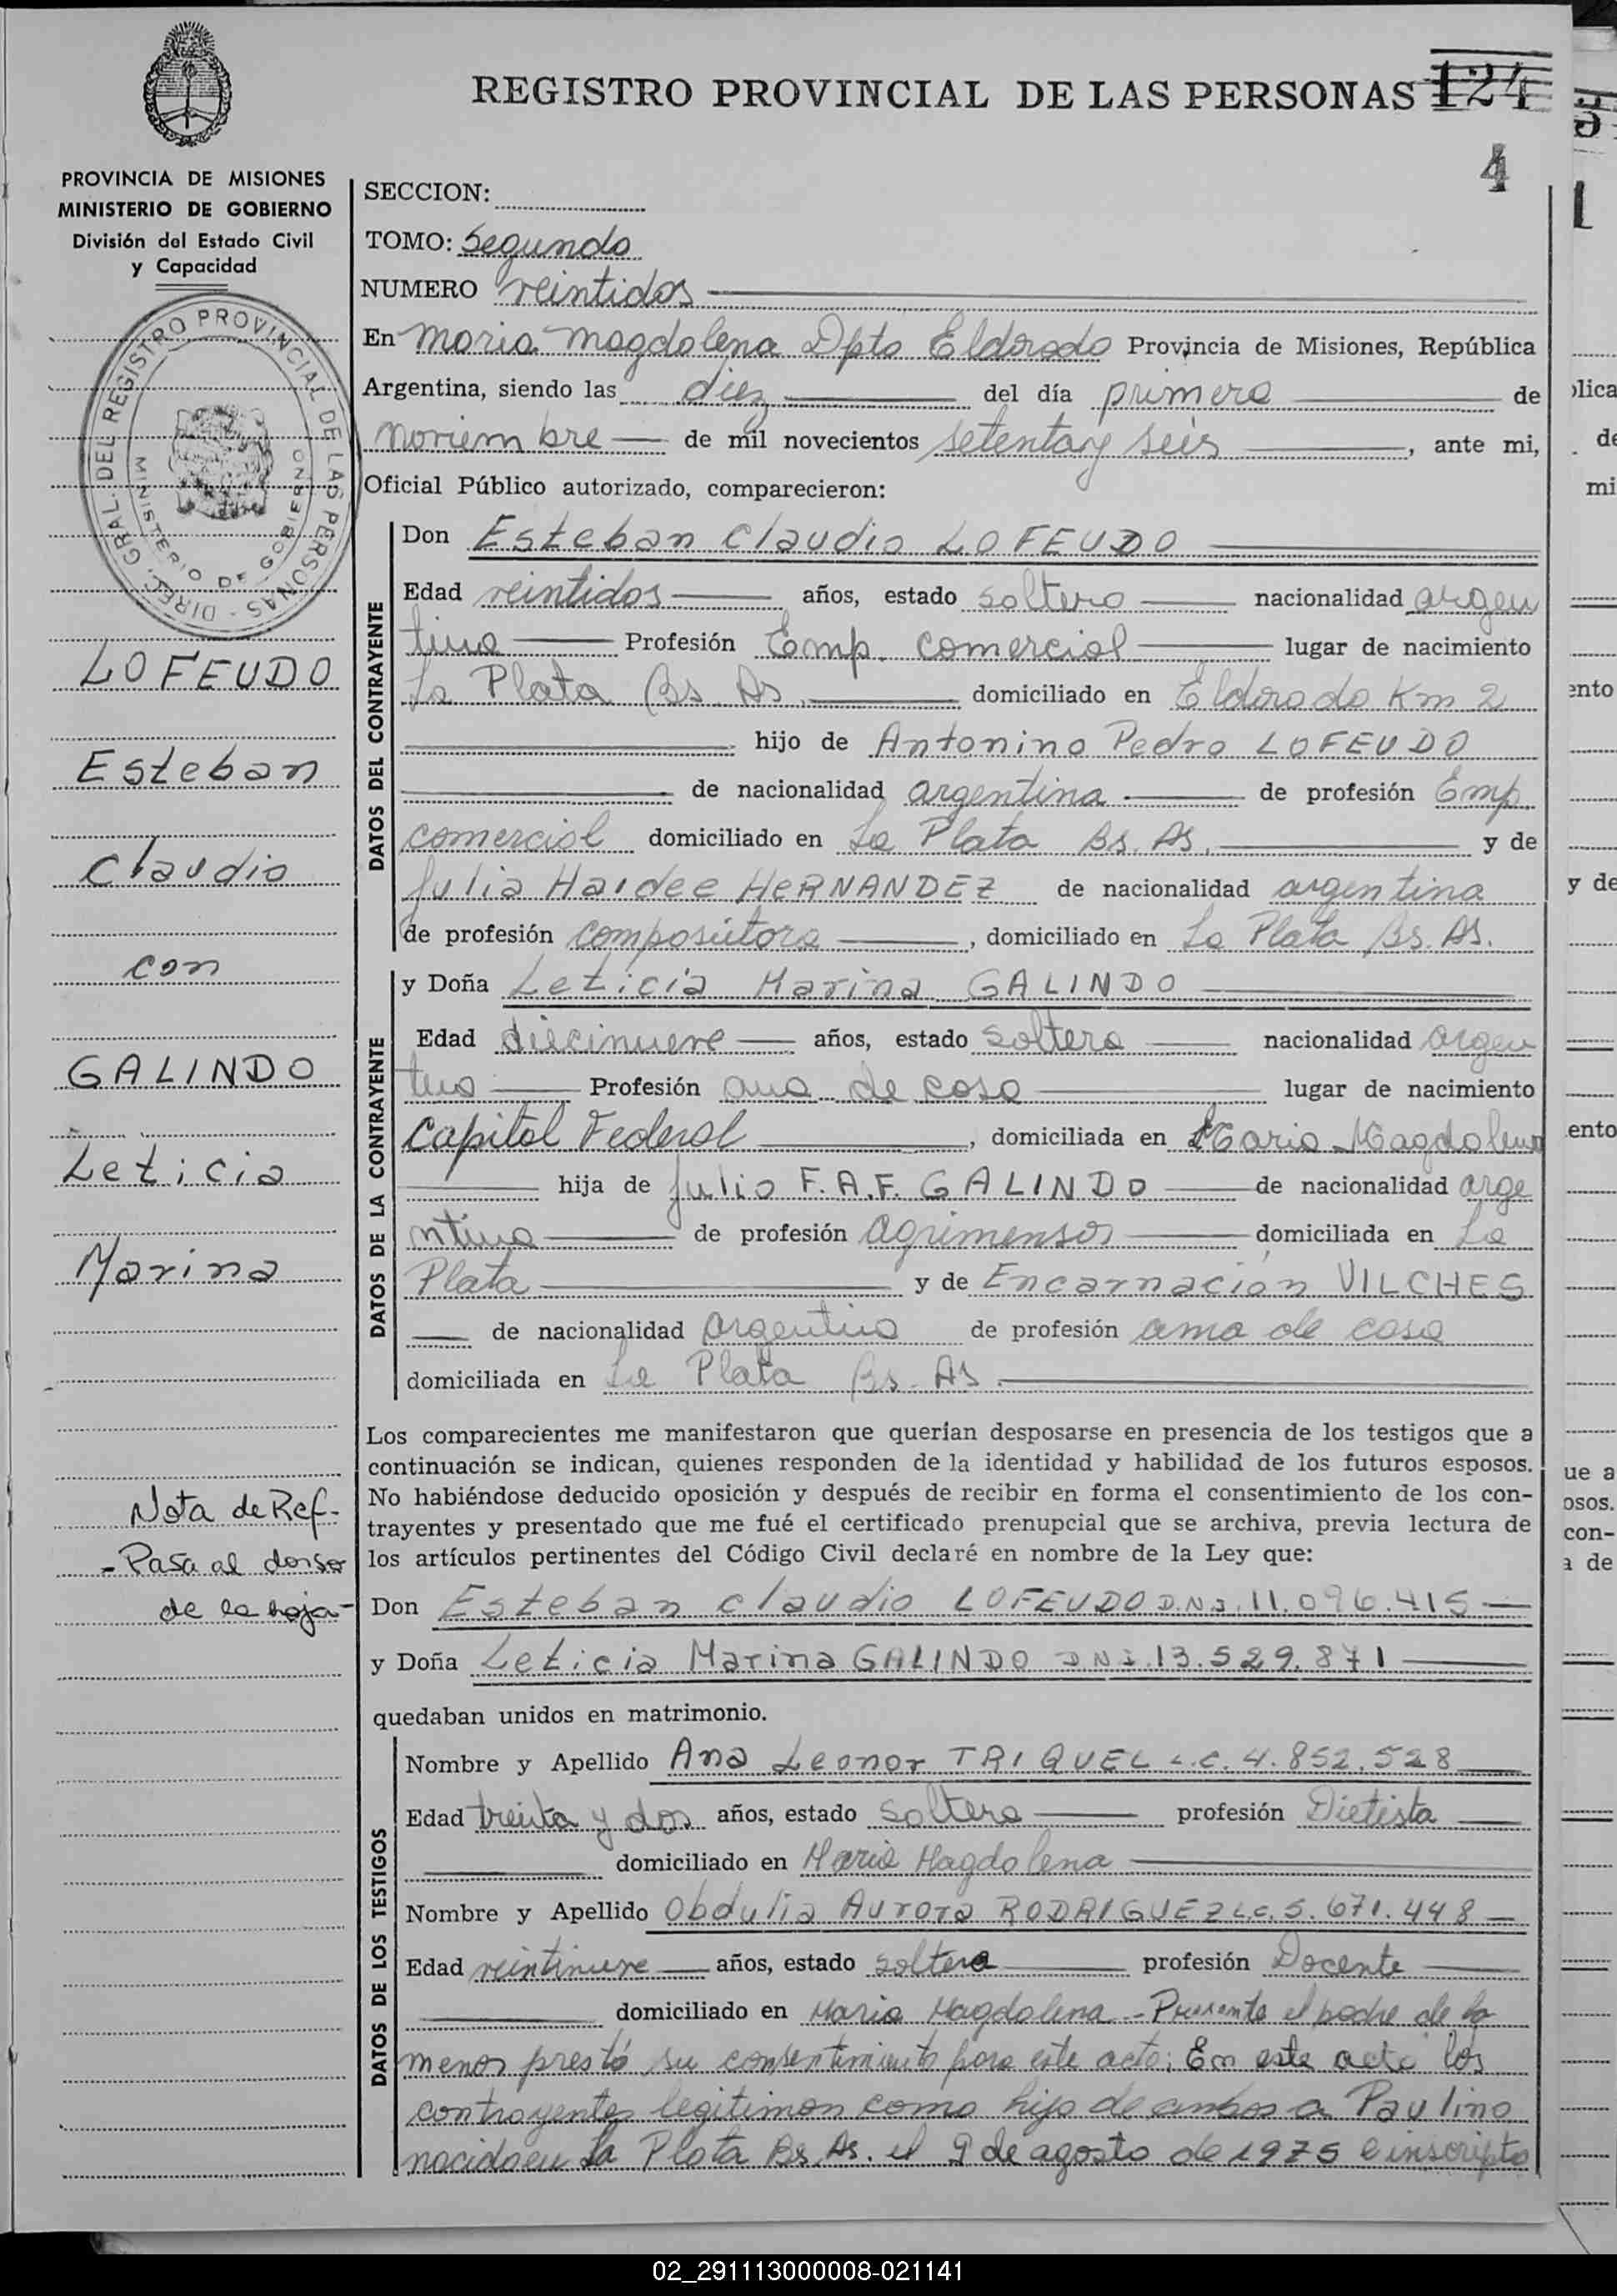 REGISTRO PROVINCIAL DE LAS PERSONAS 124
4
PROVINCIA DE MISIONES
MINISTERIO DE GOBIERNO
División del Estado Civil
y Capacidad
DIREC. GRAL. DEL REGISTRO PROVINCIAL DE LAS PERSONAS -
MINISTERIO DE GOBIERNO
LOFEUDO
Esteban
Claudio
con
GALINDO
Leticia
Marina
Nota de Ref-
- Pasa al dorso
de la hoja-
SECCION:
TOMO: Segundo
NUMERO veintidos
En Maria Magdalena Dpto Eldorado Provincia de Misiones, República
Argentina, siendo las diez del día primero de
noviembre de mil novecientos setenta y seis, ante mi,
Oficial Público autorizado, comparecieron:
DATOS DEL CONTRAYENTE
Don Esteban Claudio LOFEUDO
Edad veintidos años, estado soltero nacionalidad argen
tina Profesión Emp. comercial lugar de nacimiento
La Plata Bs. As. domiciliado en Eldorado Km 2
hijo de Antonino Pedro LOFEUDO
de nacionalidad argentina de profesión Emp
comercial domiciliado en La Plata Bs. As. y de
Julia Haidee HERNANDEZ de nacionalidad argentina
de profesión compositora, domiciliado en La Plata Bs. As.
DATOS DE LA CONTRAYENTE
y Doña Leticia Marina GALINDO
Edad diecinueve años, estado soltera nacionalidad argen
tina Profesión ama de casa lugar de nacimiento
Capital Federal, domiciliada en Maria Magdalena
hija de Julio F. A. F. GALINDO de nacionalidad arge
ntina de profesión agrimensor domiciliada en La
Plata y de Encarnación VILCHES
de nacionalidad argentina de profesión ama de casa
domiciliada en La Plata Bs. As.
Los comparecientes me manifestaron que querían desposarse en presencia de los testigos que a
continuación se indican, quienes responden de la identidad y habilidad de los futuros esposos.
No habiéndose deducido oposición y después de recibir en forma el consentimiento de los con-
trayentes y presentado que me fué el certificado prenupcial que se archiva, previa lectura de
los artículos pertinentes del Código Civil declaré en nombre de la Ley que:
Don Esteban Claudio LOFEUDO D.N.I. 11.096.415
y Doña Leticia Marina GALINDO DNI. 13.529.871
quedaban unidos en matrimonio.
DATOS DE LOS TESTIGOS
Nombre y Apellido Ana Leonor TRIQUEL L.C. 4.852.528
Edad treinta y dos años, estado soltera profesión Dietista
domiciliado en Maria Magdalena
Nombre y Apellido Obdulia Aurora RODRIGUEZ L.C. 5.671.448
Edad veintinueve años, estado soltera profesión Docente
domiciliado en Maria Magdalena - Presente el padre de la
menor prestó su consentimiento para este acto; En este acto los
contrayentes legitiman como hijo de ambos a Paulino
nacido en La Plata Bs. As. el 9 de agosto de 1975 e inscripto
02_291113000008-021141